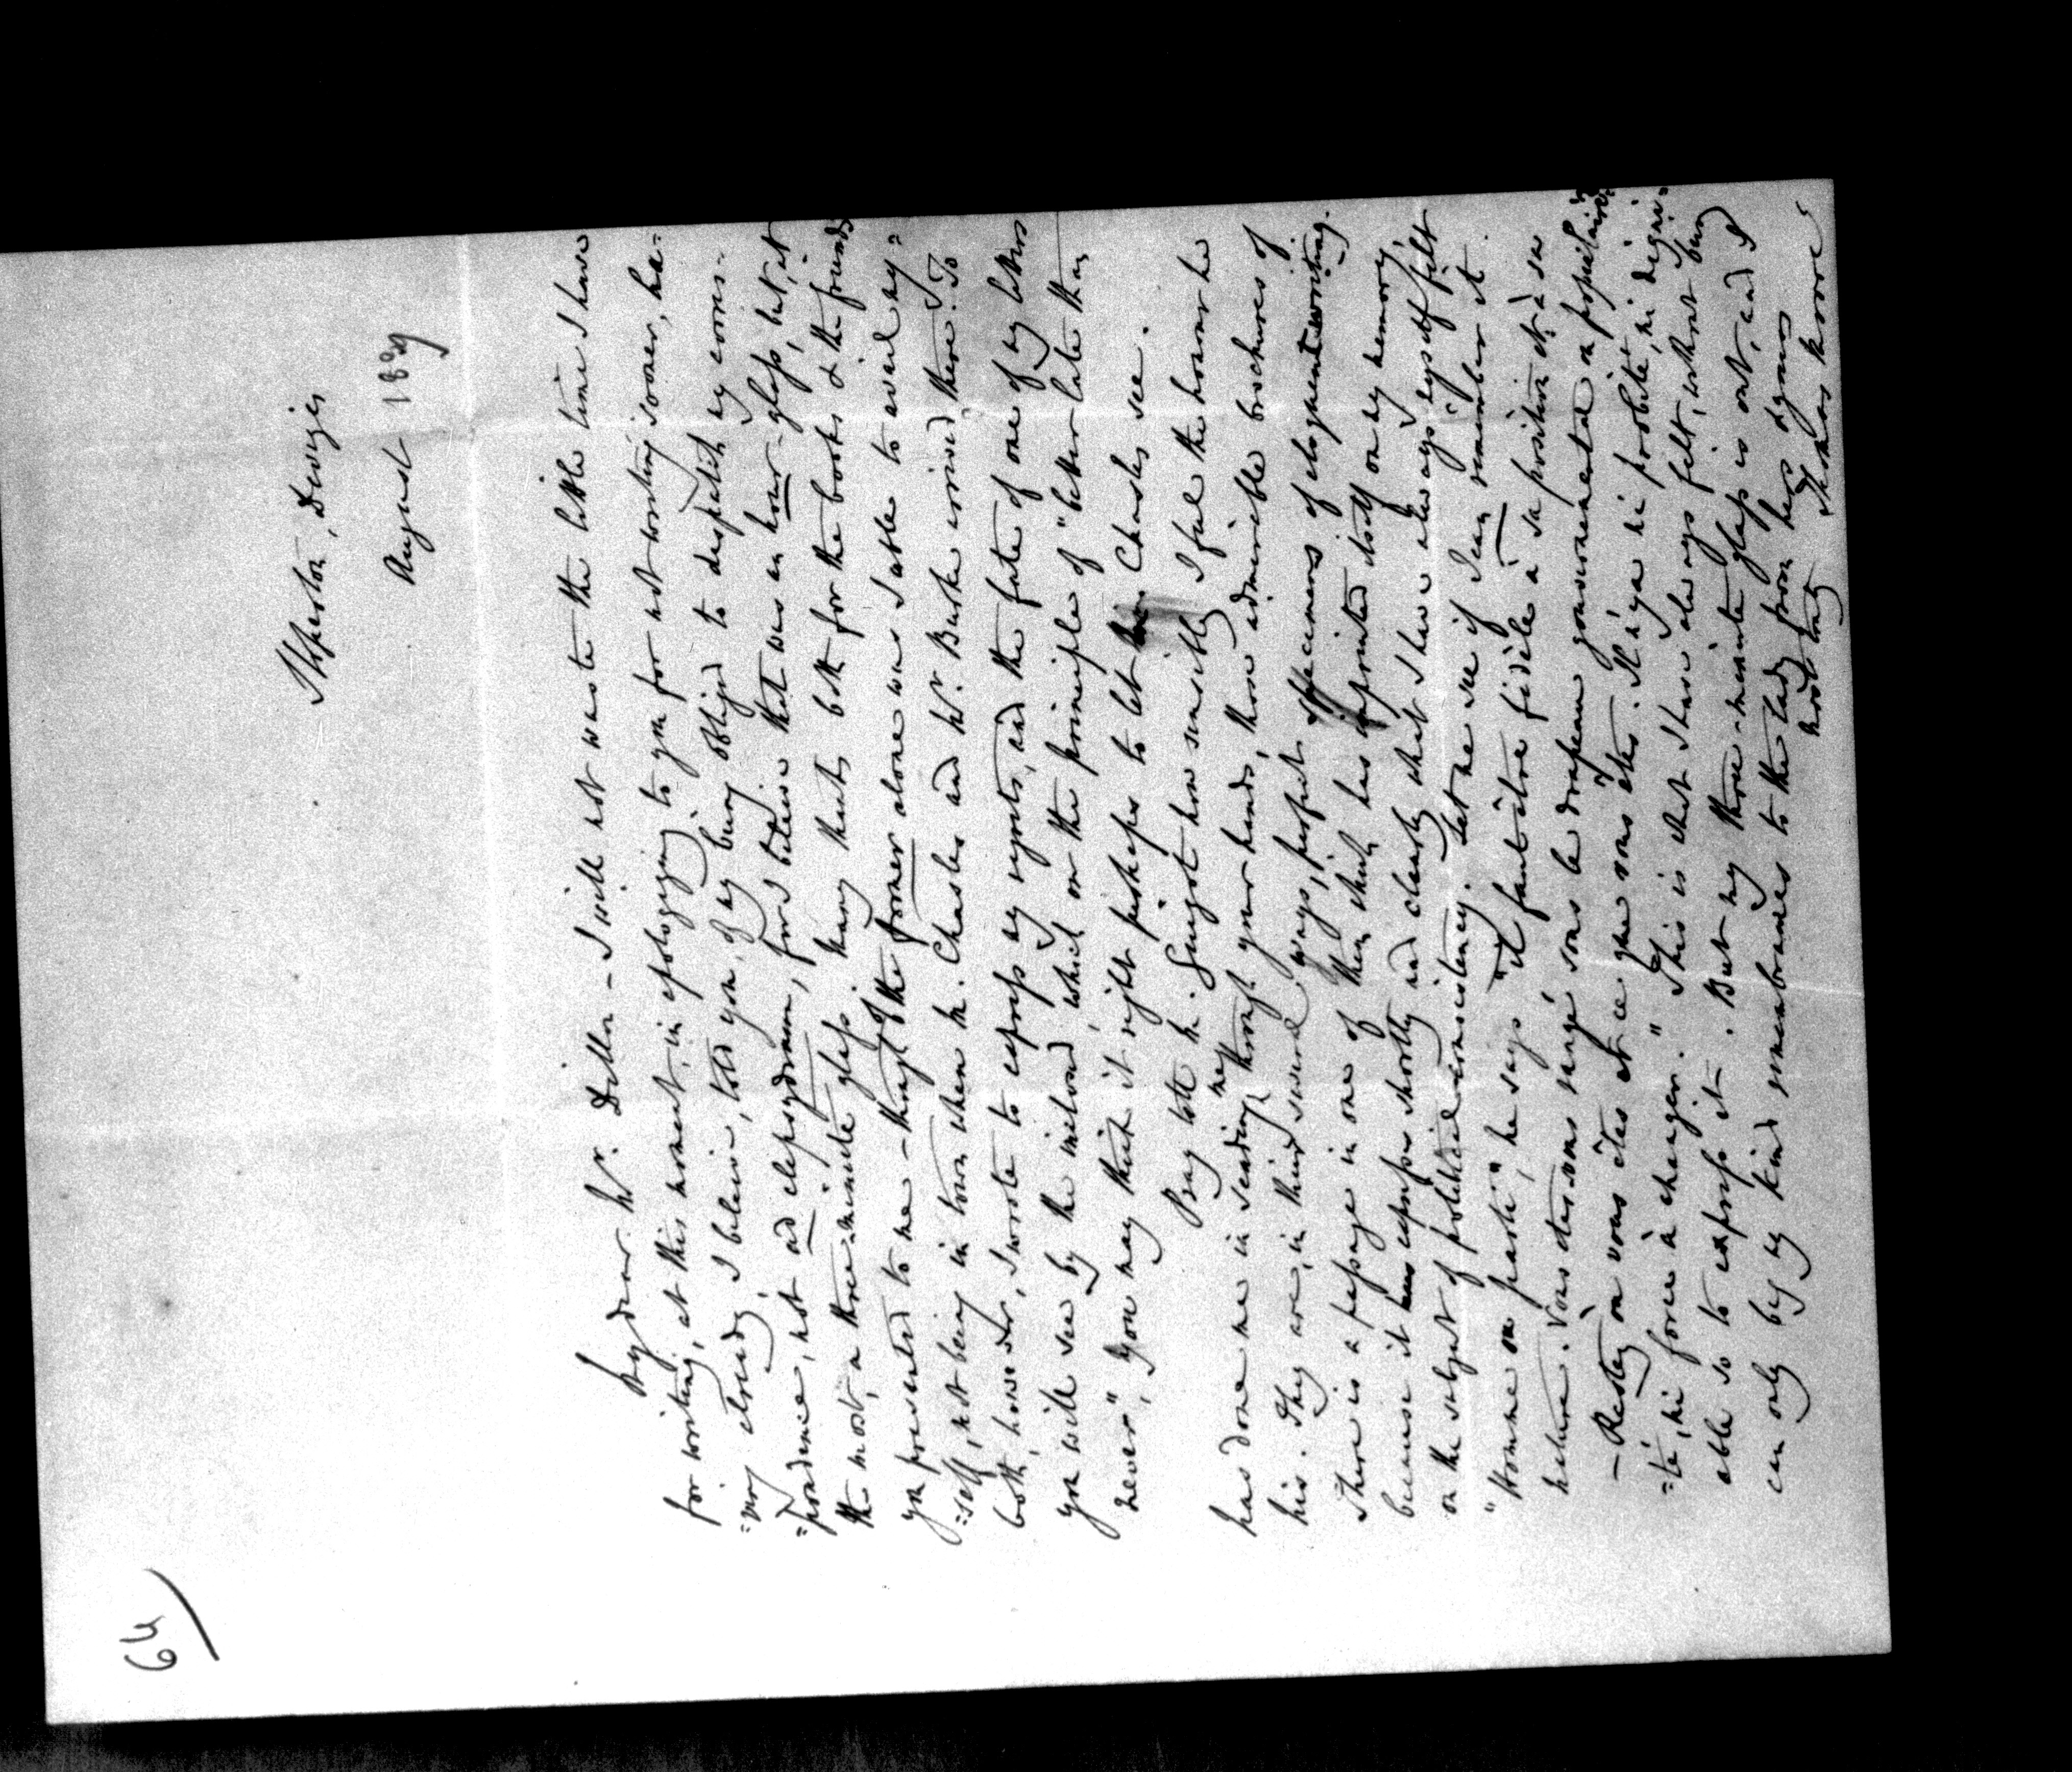 64)
Sloperton, Devizes
August 1839
My dear Mr. Dillon - I will not waste the little time I have
for writing, at this moment, in apologizing to you for not writing sooner, ha-
=ving already, I believe, told you of my being obliged to despatch my corres-
=pondence, not ad clepsydram, for I believe that was an hour-glass, but, at
the most, a three-minute glass. Many thanks both for the books & the friends
you presented to me - though of the former alone was I able to avail my=
=self, not being in town when M. Chasles and Mr. Burke arrived there. To
both, however, I wrote to express my regrets, and the fate of one of my letters
you will see by the inclosed, which on the principle of "better late than
never", you may think it right perhaps to let Chasles see.
Pray tell M. Guizot how sensibly I feel the honour he
has done me in sending me through your hands, those admirable brochures of
his. They are, in their several ways, perfect specimens of eloquent writing.
There is a passage in one of them which has imprinted itself on my memory,
because it expresses shortly and clearly what I have always myself felt
on the subject of political consistency. Let me see if I can remember it.
"Homme ou parti", he says "il faut être fidèle à sa position et à sa
nature. Vous êtes vous rangé sous le drapeau gouvernemental ou populaire?
- Restez où vous êtes et ce que vous êtes. Il n'y a ni probité, ni digni-
=té, ni force à changer." This is what I have always felt, without being
able so to express it. But my three-minute glass is out, and I
can only beg my kind remembrances to the lady from hers & yours
most truly Thomas Moore